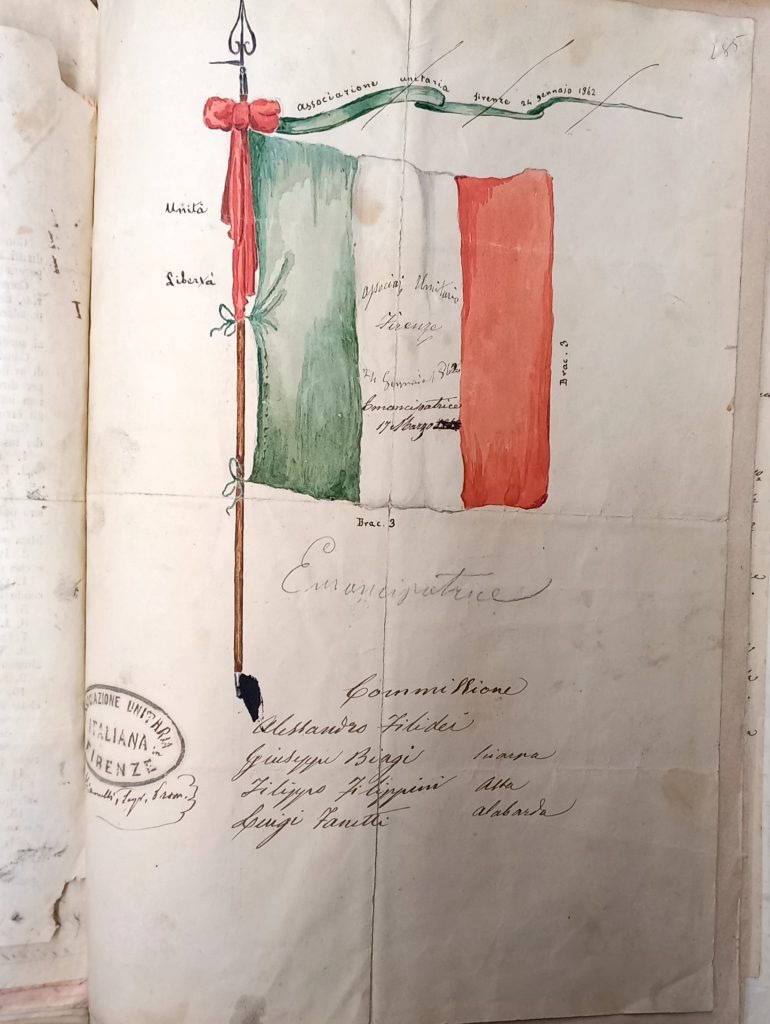 285
Associazione unitaria Firenze 24 gennaio 1862
Unità
Libertà
Associaz. Unitaria
Firenze
24 Gennaio 1862
Emancipatrice
17 Marzo
Brac. 3
Brac. 3
Emancipatrice
Commissione
Alessandro Filidei
Giuseppe Biagi sciarpa
Filippo Filippini Asta
Luigi Fanetti alabarda
ASSOCIAZIONE UNITARIA
ITALIANA
FIRENZE